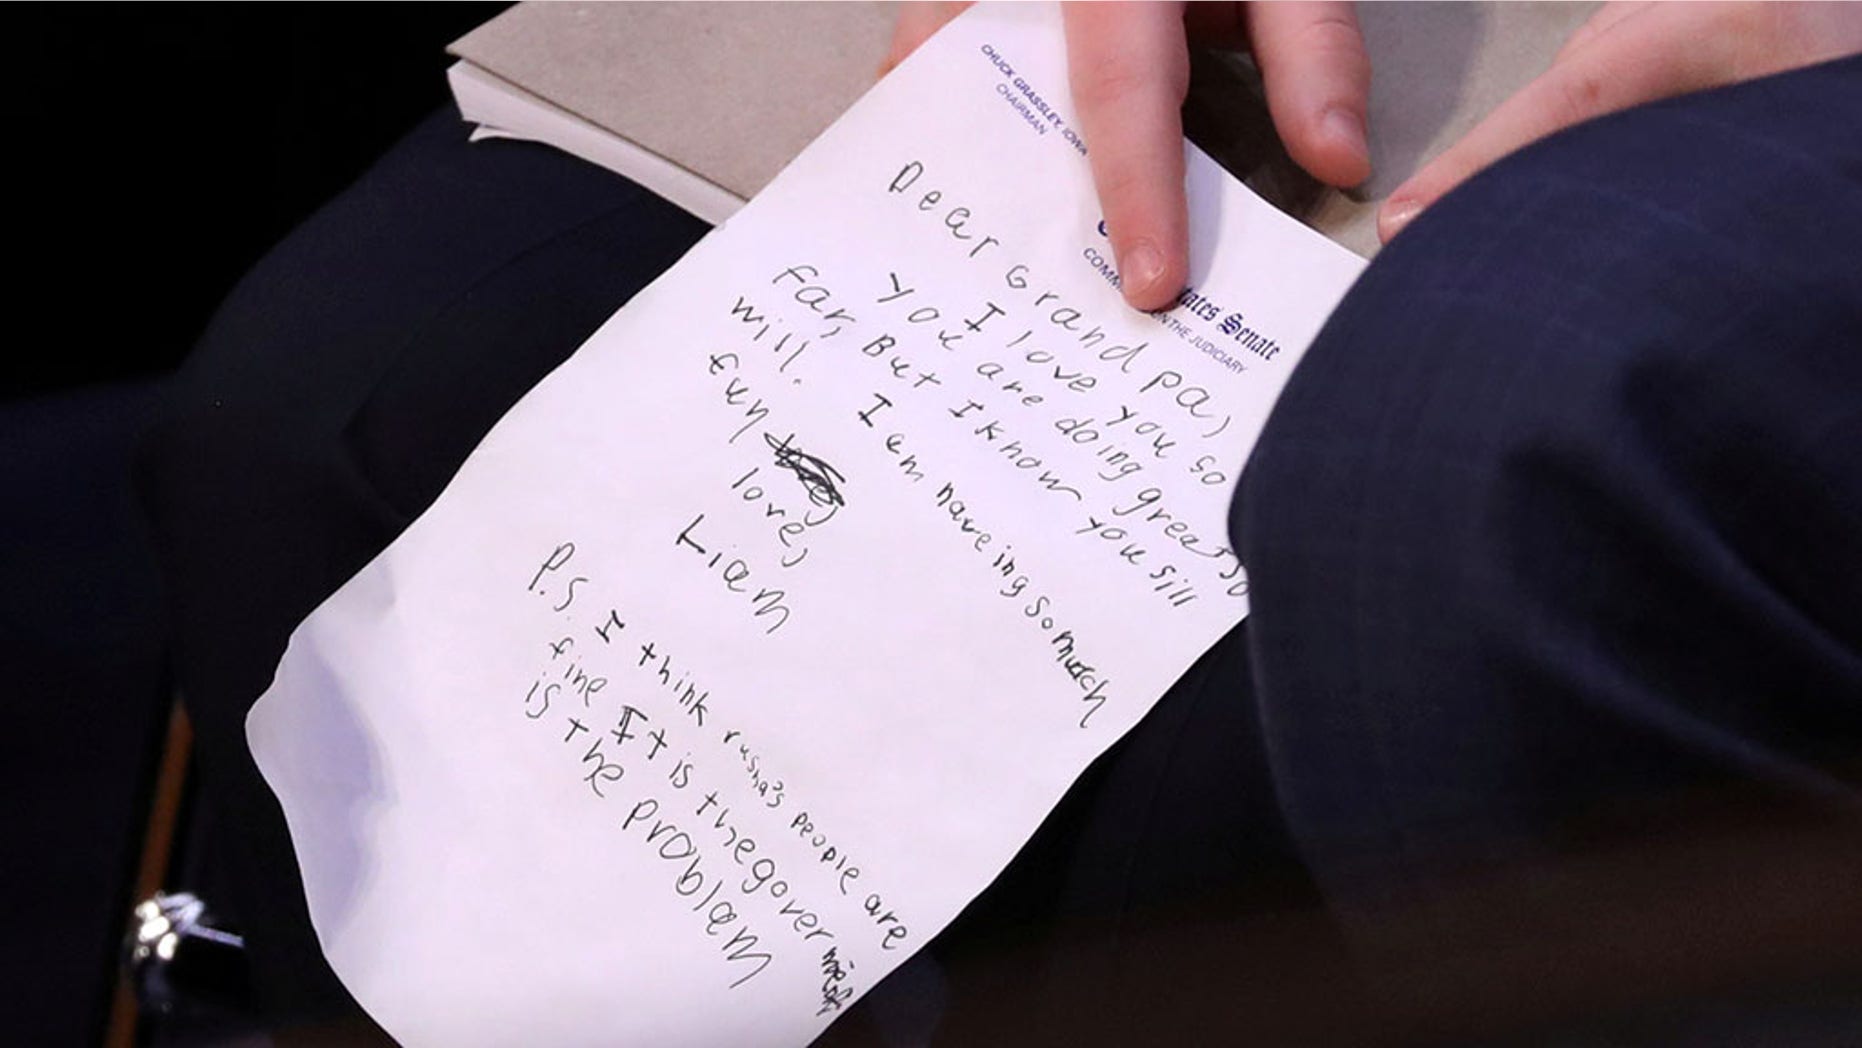 CHUCK GRASSLEY, IOWA
CHAIRMAN
tates Senate
ON THE JUDICIARY
Dear Grandpa,
I love you so
You are doing great so
far, But I know you sill
will. I am haveing so much
fun
love,
Liam
P.S. I think rusha's people are
fine It is the goverment
is the problam